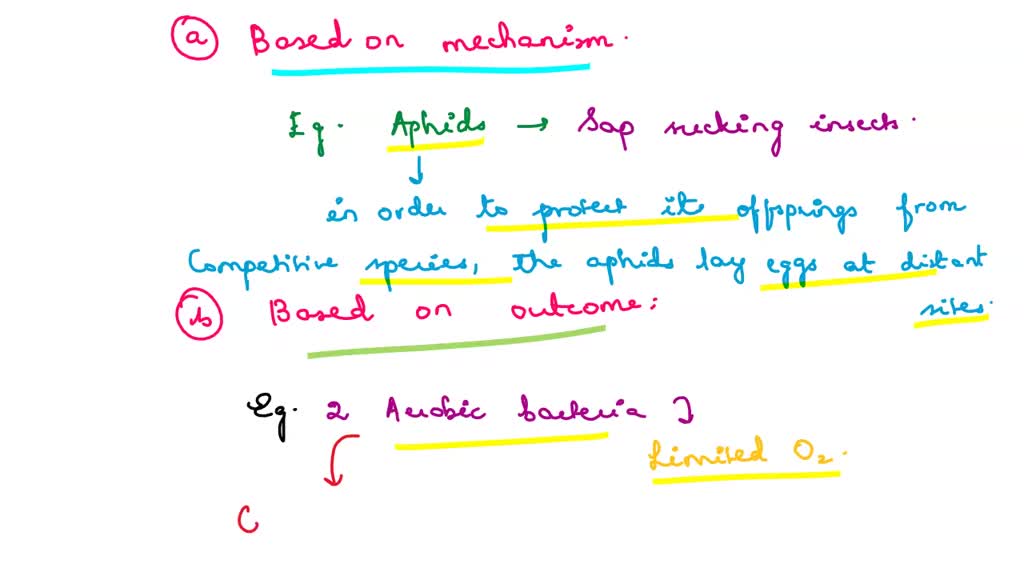 a Based on mechanism.
Eg. Aphids → Sap sucking insects.
↓
in order to protect its offsprings from
Competitive species, the aphids lay eggs at distant
sites.
b Based on outcome:
Eg. 2 Aerobic bacteria ]
Limited O2.
C